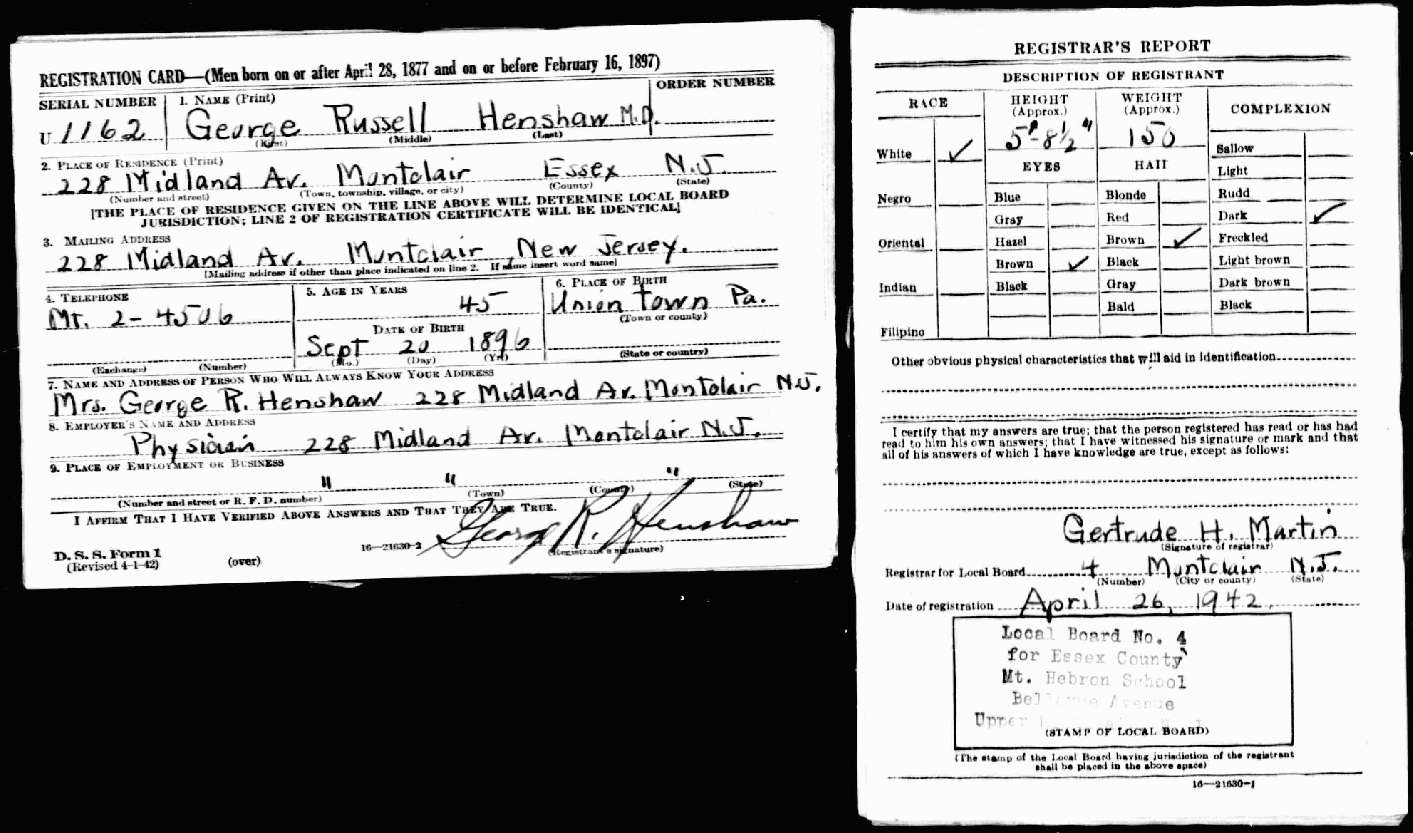 REGISTRATION CARD—(Men born on or after April 28, 1877 and on or before February 16, 1897)
SERIAL NUMBER 1. NAME (Print) ORDER NUMBER
U 1162 George Russell Henshaw M.D.
(First) (Middle) (Last)
2. PLACE OF RESIDENCE (Print)
228 Midland Av. Montclair Essex N.J.
(Number and street) (Town, township, village, or city) (County) (State)
[THE PLACE OF RESIDENCE GIVEN ON THE LINE ABOVE WILL DETERMINE LOCAL BOARD
JURISDICTION; LINE 2 OF REGISTRATION CERTIFICATE WILL BE IDENTICAL]
3. MAILING ADDRESS
228 Midland Av. Montclair, New Jersey.
[Mailing address if other than place indicated on line 2. If same insert word same]
4. TELEPHONE 5. AGE IN YEARS 6. PLACE OF BIRTH
Mt. 2-4506 45 Uniontown Pa.
(Town or county)
DATE OF BIRTH
Sept 20 1896
(Mo.) (Day) (Yr.) (State or country)
(Exchange) (Number)
7. NAME AND ADDRESS OF PERSON WHO WILL ALWAYS KNOW YOUR ADDRESS
Mrs. George R. Henshaw 228 Midland Av. Montclair N.J.
8. EMPLOYER'S NAME AND ADDRESS
Physician 228 Midland Av. Montclair N.J.
9. PLACE OF EMPLOYMENT OR BUSINESS
" " "
(Number and street or R. F. D. number) (Town) (County) (State)
I AFFIRM THAT I HAVE VERIFIED ABOVE ANSWERS AND THAT THEY ARE TRUE.
George R. Henshaw
D. S. S. Form 1 16—21630-2 (Registrant's signature)
(Revised 4-1-42) (over)
REGISTRAR'S REPORT
DESCRIPTION OF REGISTRANT
RACE HEIGHT (Approx.) WEIGHT (Approx.) COMPLEXION
5'-8½" 150
White ✓ Sallow
EYES HAIR Light
Negro Blue Blonde Rudd
Gray Red Dark ✓
Oriental Hazel Brown ✓ Freckled
Brown ✓ Black Light brown
Indian Black Gray Dark brown
Bald Black
Filipino
Other obvious physical characteristics that will aid in identification
I certify that my answers are true; that the person registered has read or has had
read to him his own answers; that I have witnessed his signature or mark and that
all of his answers of which I have knowledge are true, except as follows:
Gertrude H. Martin
(Signature of registrar)
Registrar for Local Board 4 Montclair N.J.
(Number) (City or county) (State)
Date of registration April 26, 1942.
Local Board No. 4
for Essex County
Mt. Hebron School
Bellevue Avenue
Upper
(STAMP OF LOCAL BOARD)
(The stamp of the Local Board having jurisdiction of the registrant
shall be placed in the above space)
16—21630-1